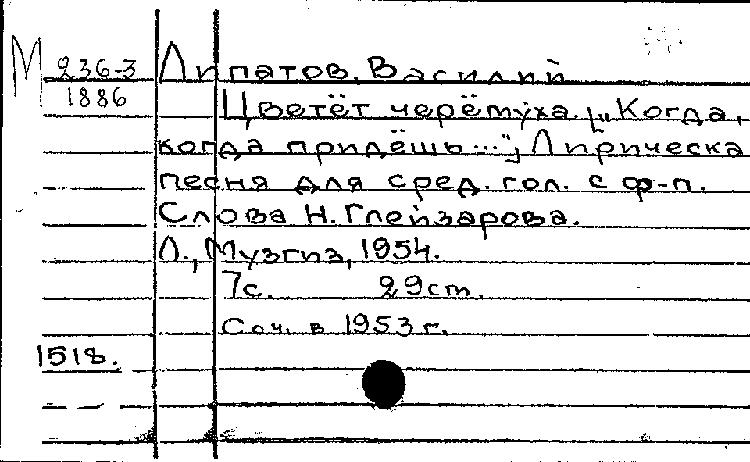 М 236-3 Липатов, Василий
1886
Цветёт черёмуха. ["Когда,
когда придёшь..."] Лирическа
песня для сред. гол. с ф-п.
Слова Н. Глейзарова.
Л., Музгиз, 1954.
7с. 29ст.
Соч. в 1953 г.
1518.